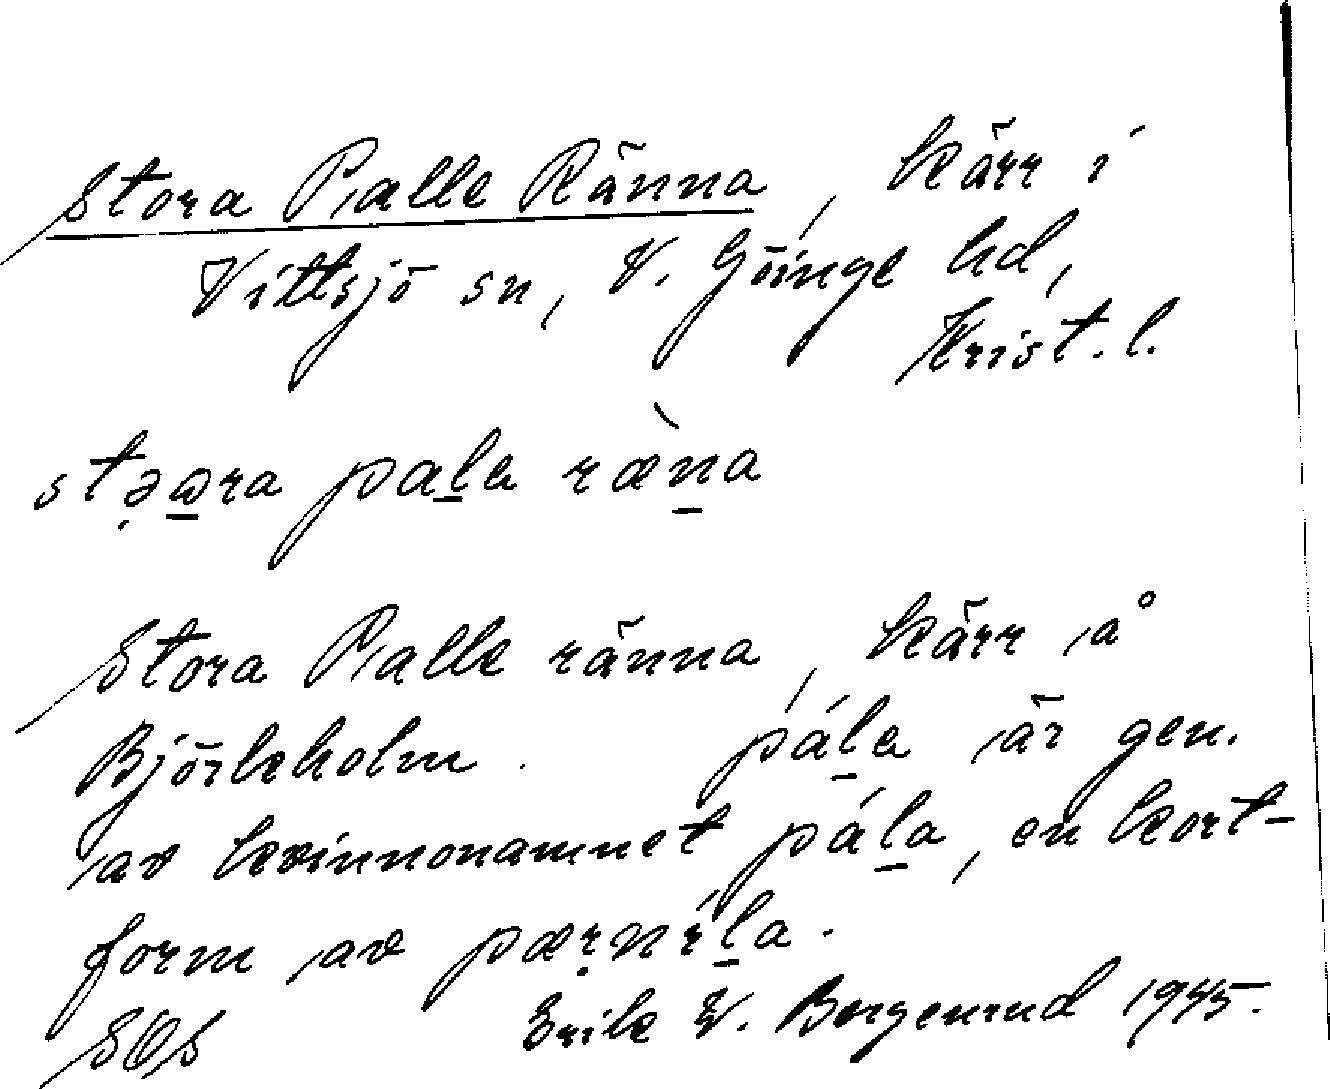 Stora Palle Ränna, kärr i
Vittsjö sn, V. Göinge hd,
Krist. l.
stə̣ω̲ra pal̲a ræ̀n̲a
Stora Palle ränna, kärr å
Björkeholm. pál̲a är gen.
av kvinnonamnet pál̲a, en kort-
form av pæṛníl̲a.
SOS Erik W. Bergenrud 1945.